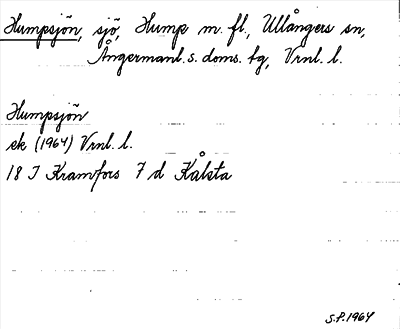 Humpsjön, sjö, Hump m. fl., Ullångers sn,
Ångermanl. s. doms. tg, Vrnl. l.
Humpsjön
ek (1964) Vrnl. l.
18 I Kramfors 7 d Kålsta
S.P. 1964